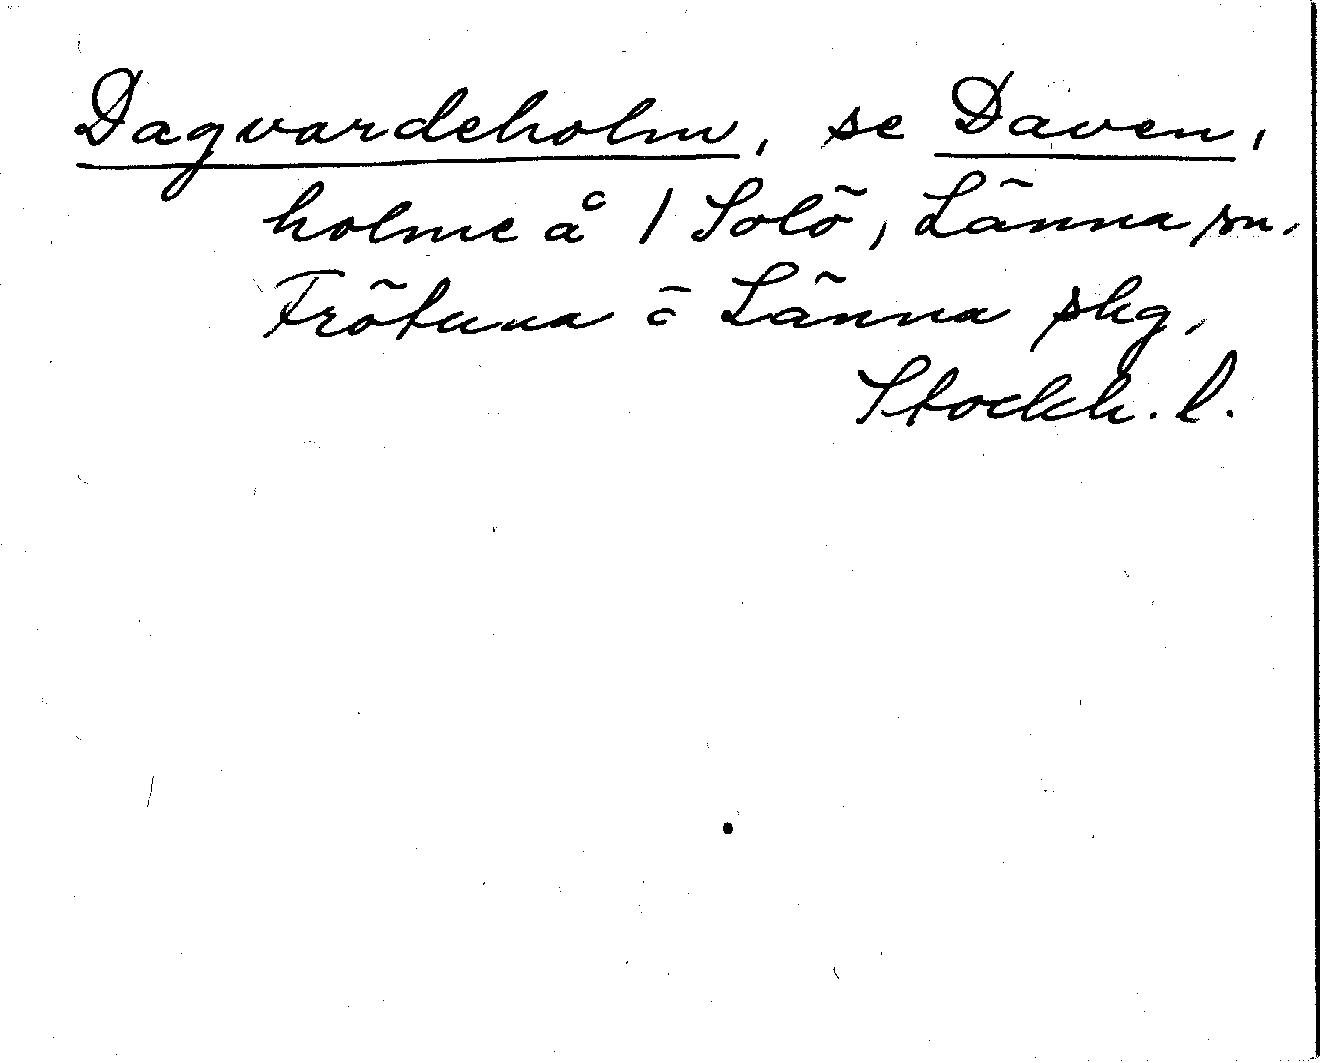 Dagvardeholm, se Daven,
holme å 1 Solö, Länna sn.
Frötuna o Länna skg,
Stockh. l.